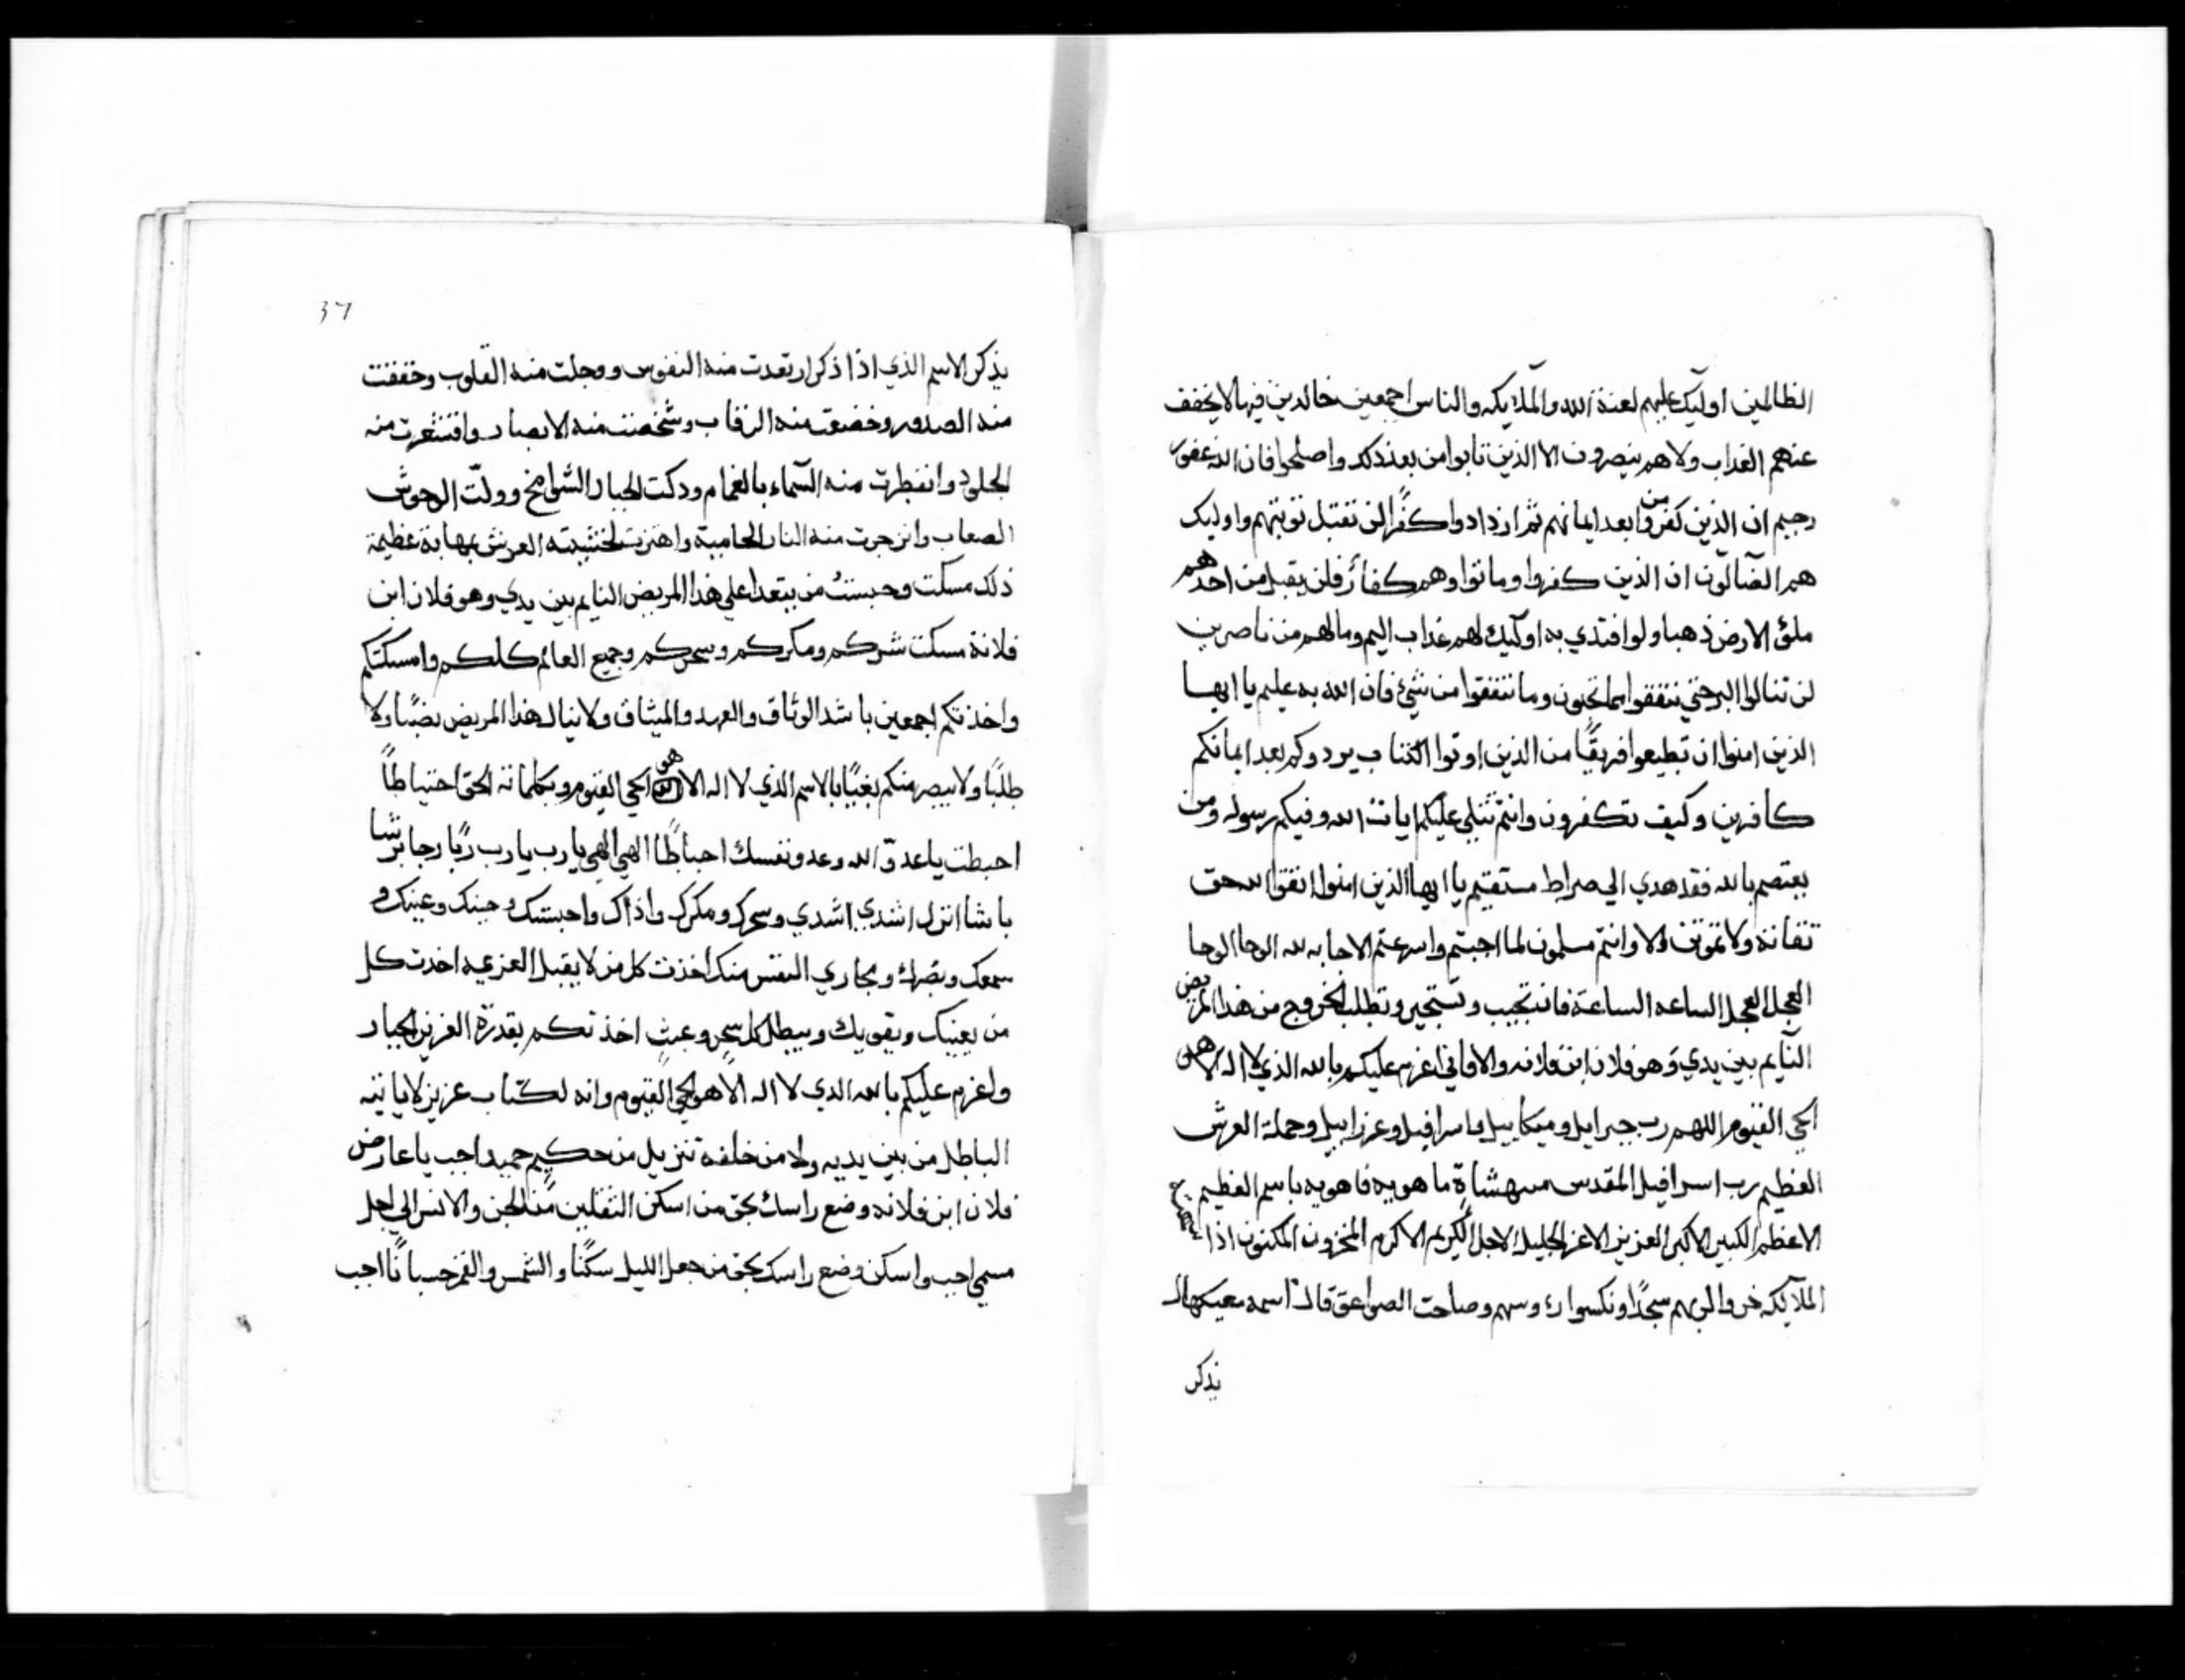 الظالمين اوليك عليهم لعنة الله والملايكه والناس اجمعين خالدين فيها لا يخفف
عنهم العذاب ولا هم ينصرون الا الذين تابوا من بعد ذلك واصلحوا فان الله غفور
رحيم ان الذين كفروا من بعد ايمانهم ثم ازدادوا كفرًا لن تقبل توبتهم واوليك
هم الضآلون ان الذين كفروا وماتوا وهم كفار فلن يقبل من احدهم
ملؤ الارض ذهبا ولو افتدي به اوليك لهم عذاب اليم وما لهم من ناصرين
لن تنالوا البر حتي تنفقوا مما تحبون وما تنفقوا من شيئ فان الله به عليم يا ايها
الذين امنوا ان تطيعوا فريقًا من الذين اوتوا الكتاب يردوكم بعد ايمانكم
كافرين وكيف تكفرون وانتم تتلي عليكم ايات الله وفيكم رسوله ومن
يعتصم بالله فقد هدي الي صراط مستقيم يا ايها الذين امنوا اتقوا الله حق
تقاته ولا تموتن الا وانتم مسلمون لما اجبتم واسرعتم الاجابه لله الوحا الوحا
العجل العجل الساعه الساعة فانت تجيب وتستجير وتطلب الخروج من هذا المريض
النآيم بين يدي وهو فلان ابن فلانه والا فاني اعزم عليكم بالله الذي لا اله الا هو
الحي القيوم اللهم رب جبرايل وميكاييل واسرافيل وعزراييل وحملة العرش
العظيم رب اسرافيل المقدس ما هويه فاهويه باسم العظيم
الاعظم الكبير الاكبر العزيز الاعز الجليل الاجل الكريم الاكرم المخزون المكنون اذا
الملآيكه خروا لربهم سجدًا ونكسوا رءوسهم وصاحت الصواعق قال اسمه
يذكر
٣٦
يذكر الاسم الذي اذا ذكر ارتعدت منه النفوس ووجلت منه القلوب وخفقت
منه الصدور وخضعت منه الرقاب وشخصت منه الابصار واقشعرت منه
الجلود وانفطرت منه السماء بالغمام ودكت الجبال الشوامخ وولت الوحوش
الصعاب وانزجرت منه النار الحامية واهتزت لخشيته العرش بمهابة عظيمة
ذلك مسكت وحبست من يتعدا علي هذا المريض النايم بين يدي وهو فلان ابن
فلانة مسكت شركم ومكركم وسحركم وجميع العالم كلكم وامسكتكم
واخذتكم اجمعين باشد الوثاق والعهد والميثاق ولا ينال هذا المريض نصبًا ولا
طلبًا ولا يبصر منكم بالاسم الذي لا اله الا هو الحي القيوم وبكلماته الحق احتياطًا
احبطت يا عدو الله وعدو نفسك احباطًا الهي الهي يا رب يا رب ربًا
باشا انزل اشدي اشدي وسحرك ومكرك واذاك واحبستك وجينك وعينك و
سمعك وبصرك ومجاري النفس منك اخذت كل من لا يقبل العزيمه اخدت كل
من يعينك ويقويك ويبطل كل سحر وعبث اخذتكم بقدرة العزيز الجبار
واعزم عليكم بالله الدي لا اله الا هو الحي القيوم وانه لكتاب عزيز لا ياتيه
الباطل من بين يديه ولا من خلفه تنزيل من حكيم حميد اجب يا عارض
فلان ابن فلانه وضع راسك بحق من اسكن الثقلين من الجن والانس الي اجل
مسمي اجب واسكن وضع راسك بحق من جعل الليل سكنًا والشمس والقمر حسبانًا اجب